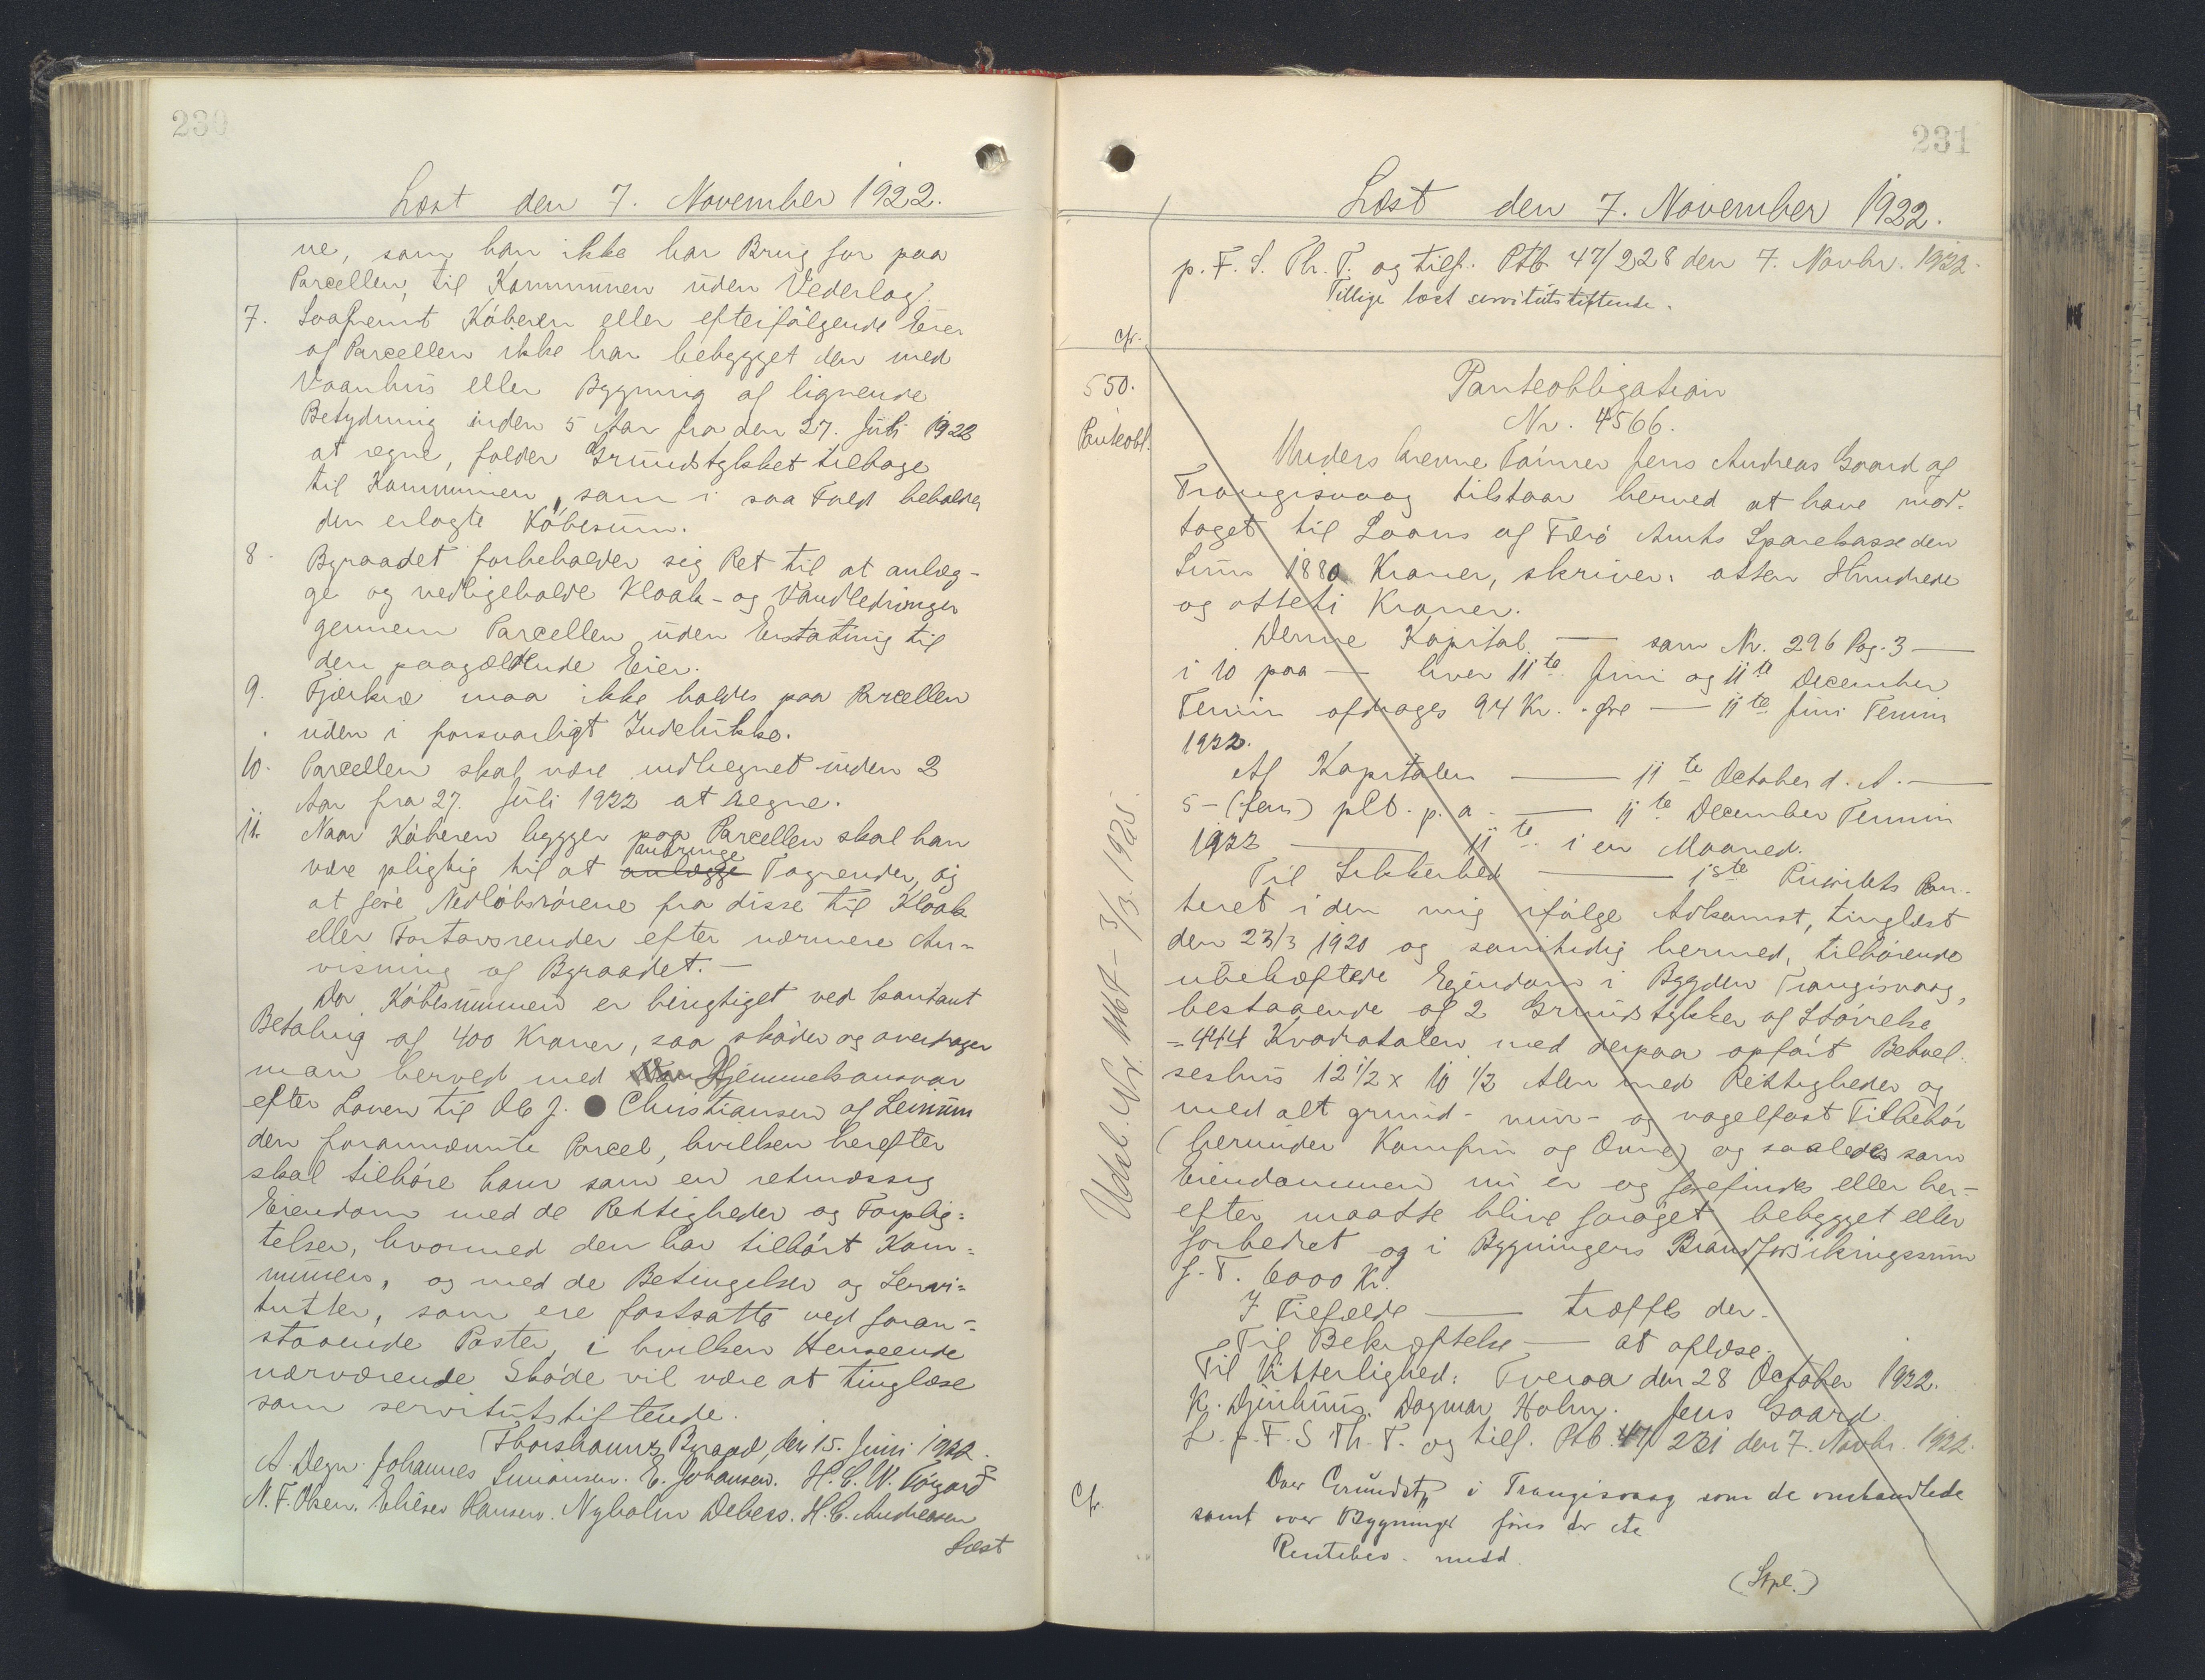 230
Læst den 7. November 1922.
ne, som han ikke har Brug for paa
Parcellen, til Kommunen uden Vederlag.
7. Saafremt Köberen eller efterfölgende Eier
af Parcellen ikke har bebygget den med
Vaanhus eller Bygning af lignende
Betydning inden 5 Aar fra den 27. Juli 1922
at regne, falder Grundstykket tilbage
til Kommunen, som i saa Fald beholder
den erlagte Köbesum.
8. Byraadet forbeholder sig Ret til at anlæg-
ge og vedligeholde Kloak- og Vandledninger
gennem Parcellen uden Erstatning til
den paagældende Eier.
9. Fjerkræ maa ikke holdes paa Parcellen
uden i forsvarligt Indelukke.
10. Parcellen skal være indhegnet inden 2
Aar fra 27. Juli 1922 at regne.
11. Naar Köberen bygger paa Parcellen skal han
anbringe
være pligtig til at anlægge Tagrender, og
at före Nedlöbsrörene fra disse til Kloak
eller Fortovsrender efter nærmere An-
visning af Byraadet. -
Da Köbesummen er berigtiget ved kontant
Betaling af 400 Kroner, saa sköder og overdrager
man herved med Hjemmelsansvar
efter Loven til Ole J. Christiansen af Lervum
den forannævnte Parcel, hvilken herefter
skal tilhöre ham som en retmæssig
Eiendom med de Rettigheder og Forplig=
telser, hvormed den har tilhört Kom=
munen, og med de Betingelser og Servi=
tutter, som ere fastsatte ved foran-
staaende Poster, i hvilken Henseende
nærværende Sköde vil være at tinglæse
som servitutstiftende.
Thorshavns Byraad, den 15. Juni 1922.
A. Degn. Johannes Simonsen. E. Johansen. H. C. W. Törgard
N. F. Olsen. Elieser Hansen. Nyholm Debess. H. C. Andreasen
Læst
231
Læst den 7. November 1922.
p. F. S. Th. T. og tilf. Ptb. 47/228 den 7. Novbr. 1922.
Tillige læst servitutstiftende.
cfr.
550.
Panteobl.
Panteobligation
Nr. 4566.
Underskrevne Tömrer Jens Andreas Gaard af
Trangisvaag tilstaar herved at have mod-
taget til Laans af Færö Amts Sparekasse den
Sum 1880 Kroner, skriver: atten Hundrede
og otteti Kroner.
Denne Kapital — som Nr. 296 Pag. 3 —
i 10 paa — hver 11te Juni og 11te December
Termin afdrages 94 Kr. - Øre — 11te Juni Termin
1922.
Af Kapitalen — 11te October d. A. —
5 - (fem) pCt. p. a. — 11te December Termin
1922 — 11te i en Maaned.
Til Sikkerhed — 1ste Prioritets Pan-
teret i den mig ifölge Adkomst, tinglæst
den 23/3 1920 og samtidig hermed, tilhörende
ubehæftede Ejendom i Bygden Trangisvaag,
bestaaende af 2 Grundstykker af Störrelse
= 444 Kvadratalen med derpaa opfört Beboel-
seshus 12 1/2 x 10 1/2 Alen med Rettigheder og
med alt grund- mur- og nagelfast Tilbehör
(herunder Komfur og Ovne) og saaledes som
Eiendommen nu er og forefindes eller her-
efter maatte blive foröget, bebygget eller
forbedret og i Bygningens Brandforsikringssum
f. T. 6000 Kr.
I Tilfælde — træffes der.
Til Bekræftelse — at aflæse.
Til Vitterlighed: Tveraa den 28 October 1922.
K. Djurhuus. Dagmar Holm. Jens Gaard
L. p. F. S Th. T. og tilf. Ptb. 47/231 den 7. Novbr. 1922.
Cfr.
Over Grundst. i Trangisvaag som de omhandlede
samt over Bygninger föres der ikke
Rentebev. medd.
(Stpl.)
Udsl. Nr. 1167 - 3/3. 1925.